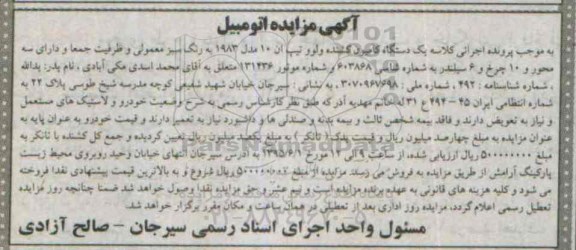 آگهی مزایده اتومبیل
به موجب پرونده اجرائی کلاسه یک دستگاه کامیون کشنده ولوو تیپ اف ۱۰ مدل ۱۹۸۳ به رنگ سبز معمولی و ظرفیت جمعا و دارای سه
محور و ۱۰ چرخ و ۶ سیلندر به شماره شاسی ۶۰۳۸۶۸ و شماره موتور ۱۳۱۴۳۶ متعلق به آقای محمد اسدی مکی آبادی ، نام پدر: یدالله
، شماره شناسنامه : ۴۹۲ ، شماره ملی : ۳۰۷۰۹۶۷۶۹۸ ، به نشانی : سیرجان خیابان شهید شفیعی کوچه مدرسه شیخ طوسی پلاک ۲۲ به
شماره انتظامی ایران ۴۵ – ۴۹۴ ع ۳۱ خانم مهدیه آذر که طبق نظر کارشناس رسمی به شرح وضعیت خودرو و لاستیک های مستعمل
و نیاز به تعویض دارند و فاقد بیمه شخص ثالث و بیمه بدنه و صندلی ها و داشبورد نیاز به تعمیر دارند و قیمت خودرو به عنوان پایه به
عنوان مزایده به مبلغ چهارصد میلیون ریال و قیمت یدک ( تانکر ) به مبلغ یکصد میلیون ریال تعیین گردیده و جمع کل کشنده با تانکر به
مبلغ ۵۰۰۰۰۰۰۰۰ ریال ارزیابی شده، از ساعت ۹ الی ۱۲ مورخ ۱۳۹۵/۶/۱ به آدرس سیرجان انتهای خیابان وحید روبروی محیط زیست
پارکینگ آرامش از طریق مزایده به فروش می رسد. مزایده از مبلغ ۵۰۰۰۰۰۰۰۰ ریال شروع و به بالاترین قیمت پیشنهادی نقدا فروخته
می شود و کلیه هزینه های قانونی به عهده برنده مزایده است و نیم عشر و حق مزایده نقدا وصول خواهد شد ضمنا چنانچه روز مزایده
تعطیل رسمی اعلام گردد، مزایده روز اداری بعد از تعطیلی در همان ساعت و مکان مقرر برگزار خواهد شد.
مسئول واحد اجرای اسناد رسمی سیرجان – صالح آزادی